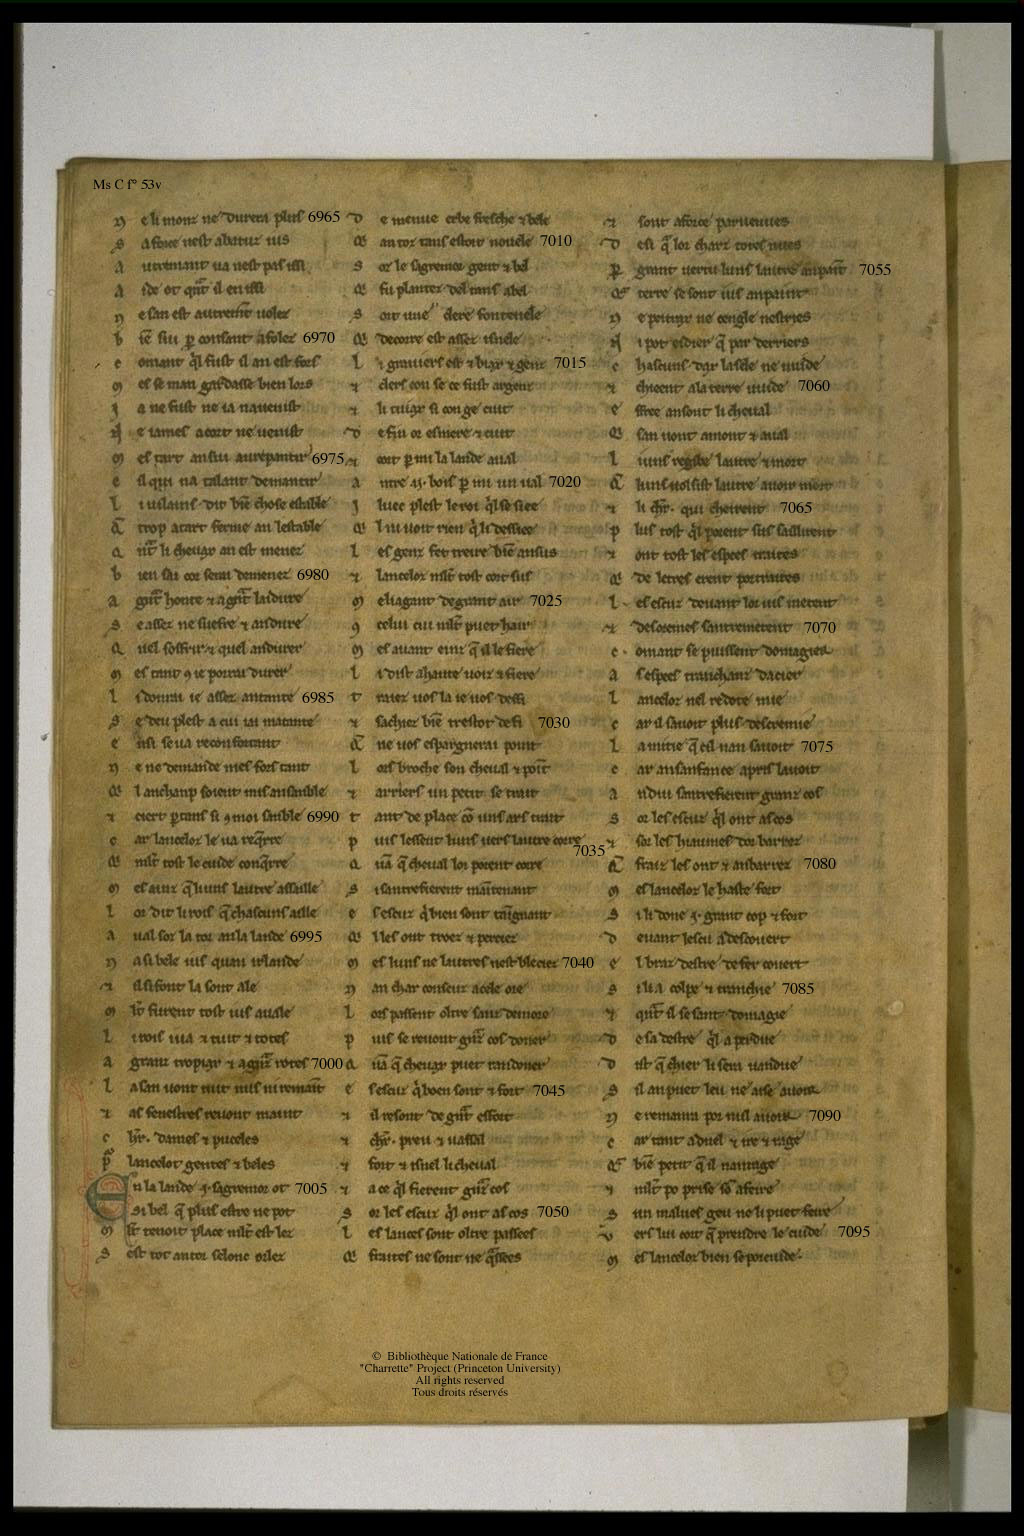 Ms C fº 53v
n e li monz ne durera plus 6965
s a force nest abatuz ius
a utremant ua nest pas issi
a ide ot qnt il en issi
n e san est autremt uolez
b ie fiu p consant afolez 6970
c omant ql fust il an est fors
m es se man gardasse bien lors
i a ne fust ne ia nauenist
e iames acort ne uenist
m es tart ansui aurepantir 6975
e il qui na talant demantir
l i uilains dit bie chose estable
q trop a tart ferme an lestable
q nt li cheuax an est menez
b ien sai cor serai demenez 6980
a gnt honte et a gnt laidure
s e assez ne suefre et andure
q uel soffrir et quel andurer
m es tant 9 ie porrai durer
l i donrai ie assez antante 6985
s e deu plest a cui iai matante
e nsi se ua reconfortant
n e ne demande mes fors tant
q l anchanp soient mis ansanble
et ciert p tans si 9 moi sanble 6990
c ar lancelot le ua reqrre
q mlt tost le cuide conqrre
m es ainz q luns lautre assaille
l or dit li rois q chascuns aille
a ual soz la tor an la lande 6995
n a si bele ius quan irlande
et il si font la sont ale
m lt furent tost ius auale
l i rois i ua et tuit et totes
a granz tropiax et a gnz rotes 7000
l a san uont tuit nus ni remaint
et as fenestres reuont maint
c hr. dames et puceles
p lancelot gentes et beles
En la lande .i. sagremor ot 7005
si bel q plus estre ne pot
m lt tenoit place mlt est lez
s est tot antor selonc orlez
d e menue erbe fresche et bele
q an toz tans estoit nouele 7010
s oz le sagremor gent et bel
q fu plantez del tans abel
s ort une clere fontenele
q de corre est assez isnele
l i grauiers est et biax et genz 7015
et clers con se ce fust argenz
et li tuiax si con ge cuit
d e fin or esmere et cuit
et cort p mi la lande aual
a ntre .ii. bois p mi un ual 7020
i luec plest le roi ql se siee
q l ni uoit rien q li dessiee
l es genz fet treire bie ansus
et lancelot mlt tost cort sus
m eliagant de grant air 7025
9 celui cui mlt puet hair
m es auant einz q il le fiere
l i dist a haute uoiz et fiere
t raiez uos la ie uos desfi
et sachiez bie trestot de fi 7030
q ne uos espargnerai point
l ors broche son cheual et point
et arriers un petit se trait
t ant de place co uns ars trait
p uis lessent luns uers lautre corre 7035
q nq cheual lor porent corre
s i santrefierent maintenant
e s escuz q bien sont taignant
q l les ont troez et perciez
m es luns ne lautres nest bleciez 7040
n an char conseuz a cele ore
l ors passent oltre sanz demore
p uis se reuont gnz cos doner
q nq cheuax puet randoner
e s escuz q boen sont et fort 7045
et il resont de gnt esfort
et chr. preu et uassal
et fort et isnel li cheual
et a ce ql fierent gnz cos
s or les escuz ql ont as cos 7050
l es lances sont oltre passees
q fraites ne sont ne qssees
et sont a force paruenues
d esi q lor charz totes nues
p grant uertu luns lautre anpaint 7055
q terre se sont ius anpaint
n e peitrax ne cengle nestriex
i pot eidier q par derriers
c hascuns dax la sele ne uuide
et chieent a la terre uuide 7060
e sfree an sont li cheual
q san uont amont et aual
l i uns regibe lautre et mort
q luns uolsist lautre auoir mort
et li chr. qui cheirent 7065
p lus tost ql porent sus saillirent
et ont tost les espees traites
q de letres erent portraites
l es escuz deuant lor uis metent
et desoremes santremetent 7070
c omant se puissent domagier
a s espees tranchanz dacier
l ancelot nel redote mie
c ar il sauoit plus descremie
l a mitie q cil nan sauoit 7075
c ar an sanfance apris lauoit
a ndui santrefierent granz cos
s or les escuz ql ont as cos
et sor les hiaumes dor barrez
q fraiz les ont et anbarrez 7080
m es lancelot le haste fort
s i li done .i. grant cop et fort
d euant lescu a descouert
e l braz destre de fer couert
s i li a colpe et tranchie 7085
et qnt il se sant domagie
d e sa destre ql a perdue
d ist q chier li sera uandue
s il an puet leu ne aise auoir
n e remanra por nul auoir 7090
c ar tant a duel et ire et rage
q bie petit q il nanrage
et mlt po prise so afeire
s un maluei geu ne li puet feire
v ers lui cort q prendre le cuide 7095
m es lancelot bien se porcuide.
© Bibliothèque Nationale de France
"Charrette" Project (Princeton University)
All rights reserved
Tous droits réservés